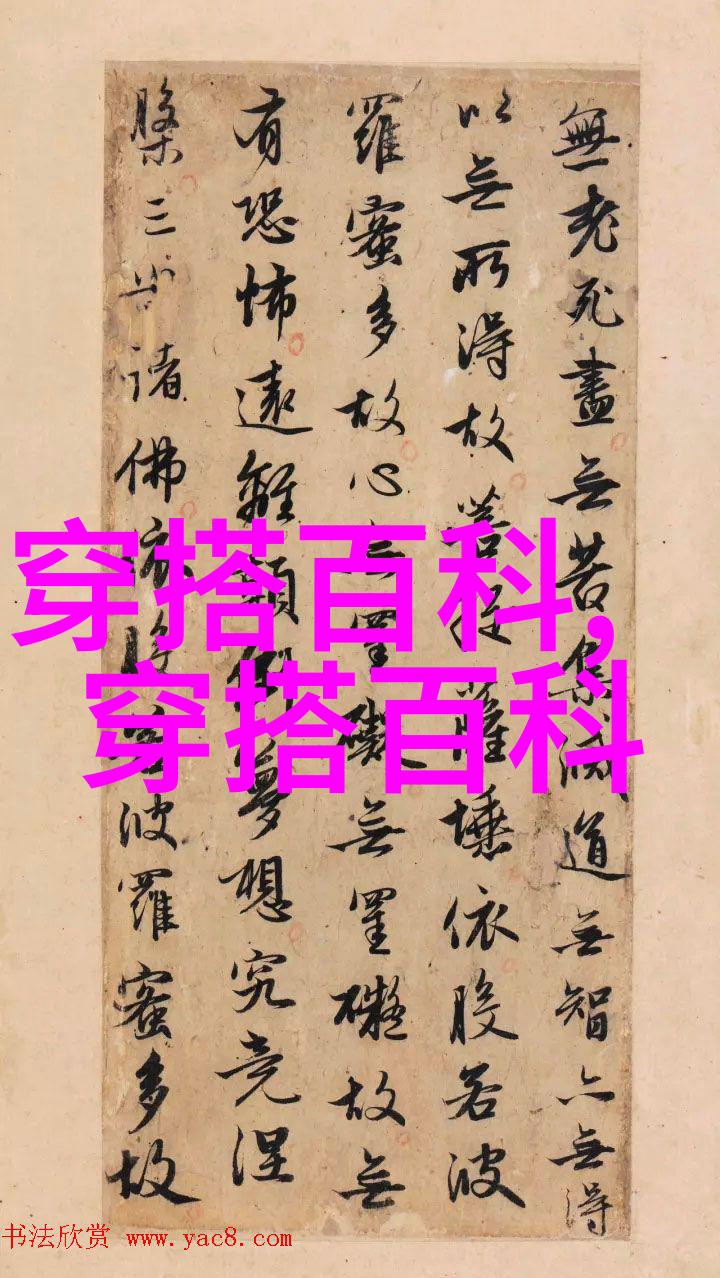 無老死盡無苦集滅道無智亦無得
以無所得故菩提薩埵依般若波
羅蜜多故心無罣礙無罣礙故無
有恐怖遠離顛倒夢想究竟涅
槃三世諸佛依般若波羅蜜多故
穿搭百科,
穿搭百科
书法欣赏 www.yac8.com